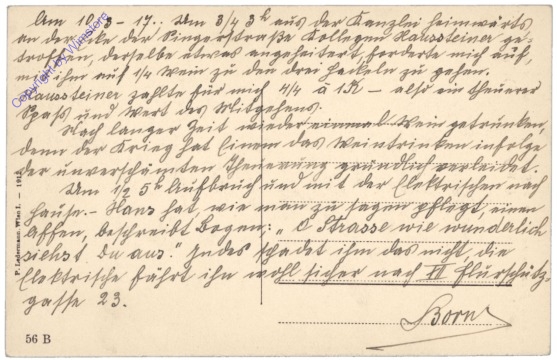 Am 10/3 - 17.. Um 3/4 3h aus der Kanzlei heimwärts
an der Ecke der Singerstraße Kollegen Haussteiner ge-
troffen, derselbe etwas angeheitert, forderte mich auf,
mit ihm auf 1/4 Wein zu den drei Hackeln zu gehen.
Haussteiner zahlte für mich 4/4 à 1K – also ein theuerer
Spaß und Wert des Mitgehens.
Nach langer Zeit wieder einmal Wein getrunken,
denn der Krieg hat Einem das Weintrinken infolge
der unverschämten Theuerung gründlich verleidet.
Um 1/2 5h Aufbruch und mit der Elektrischen nach
Hause. – Hans hat wie man zu sagen pflegt, einen
Affen, beschreibt Bogen: „O Strasse wie wunderlich
siehst du aus." Indes schadet ihm das nicht, die
Elektrische fährt ihn wohl sicher nach VI Flurschütz-
gasse 23.
Born
P. Ledermann, Wien I. – 191
56 B
Copyright by Winsters